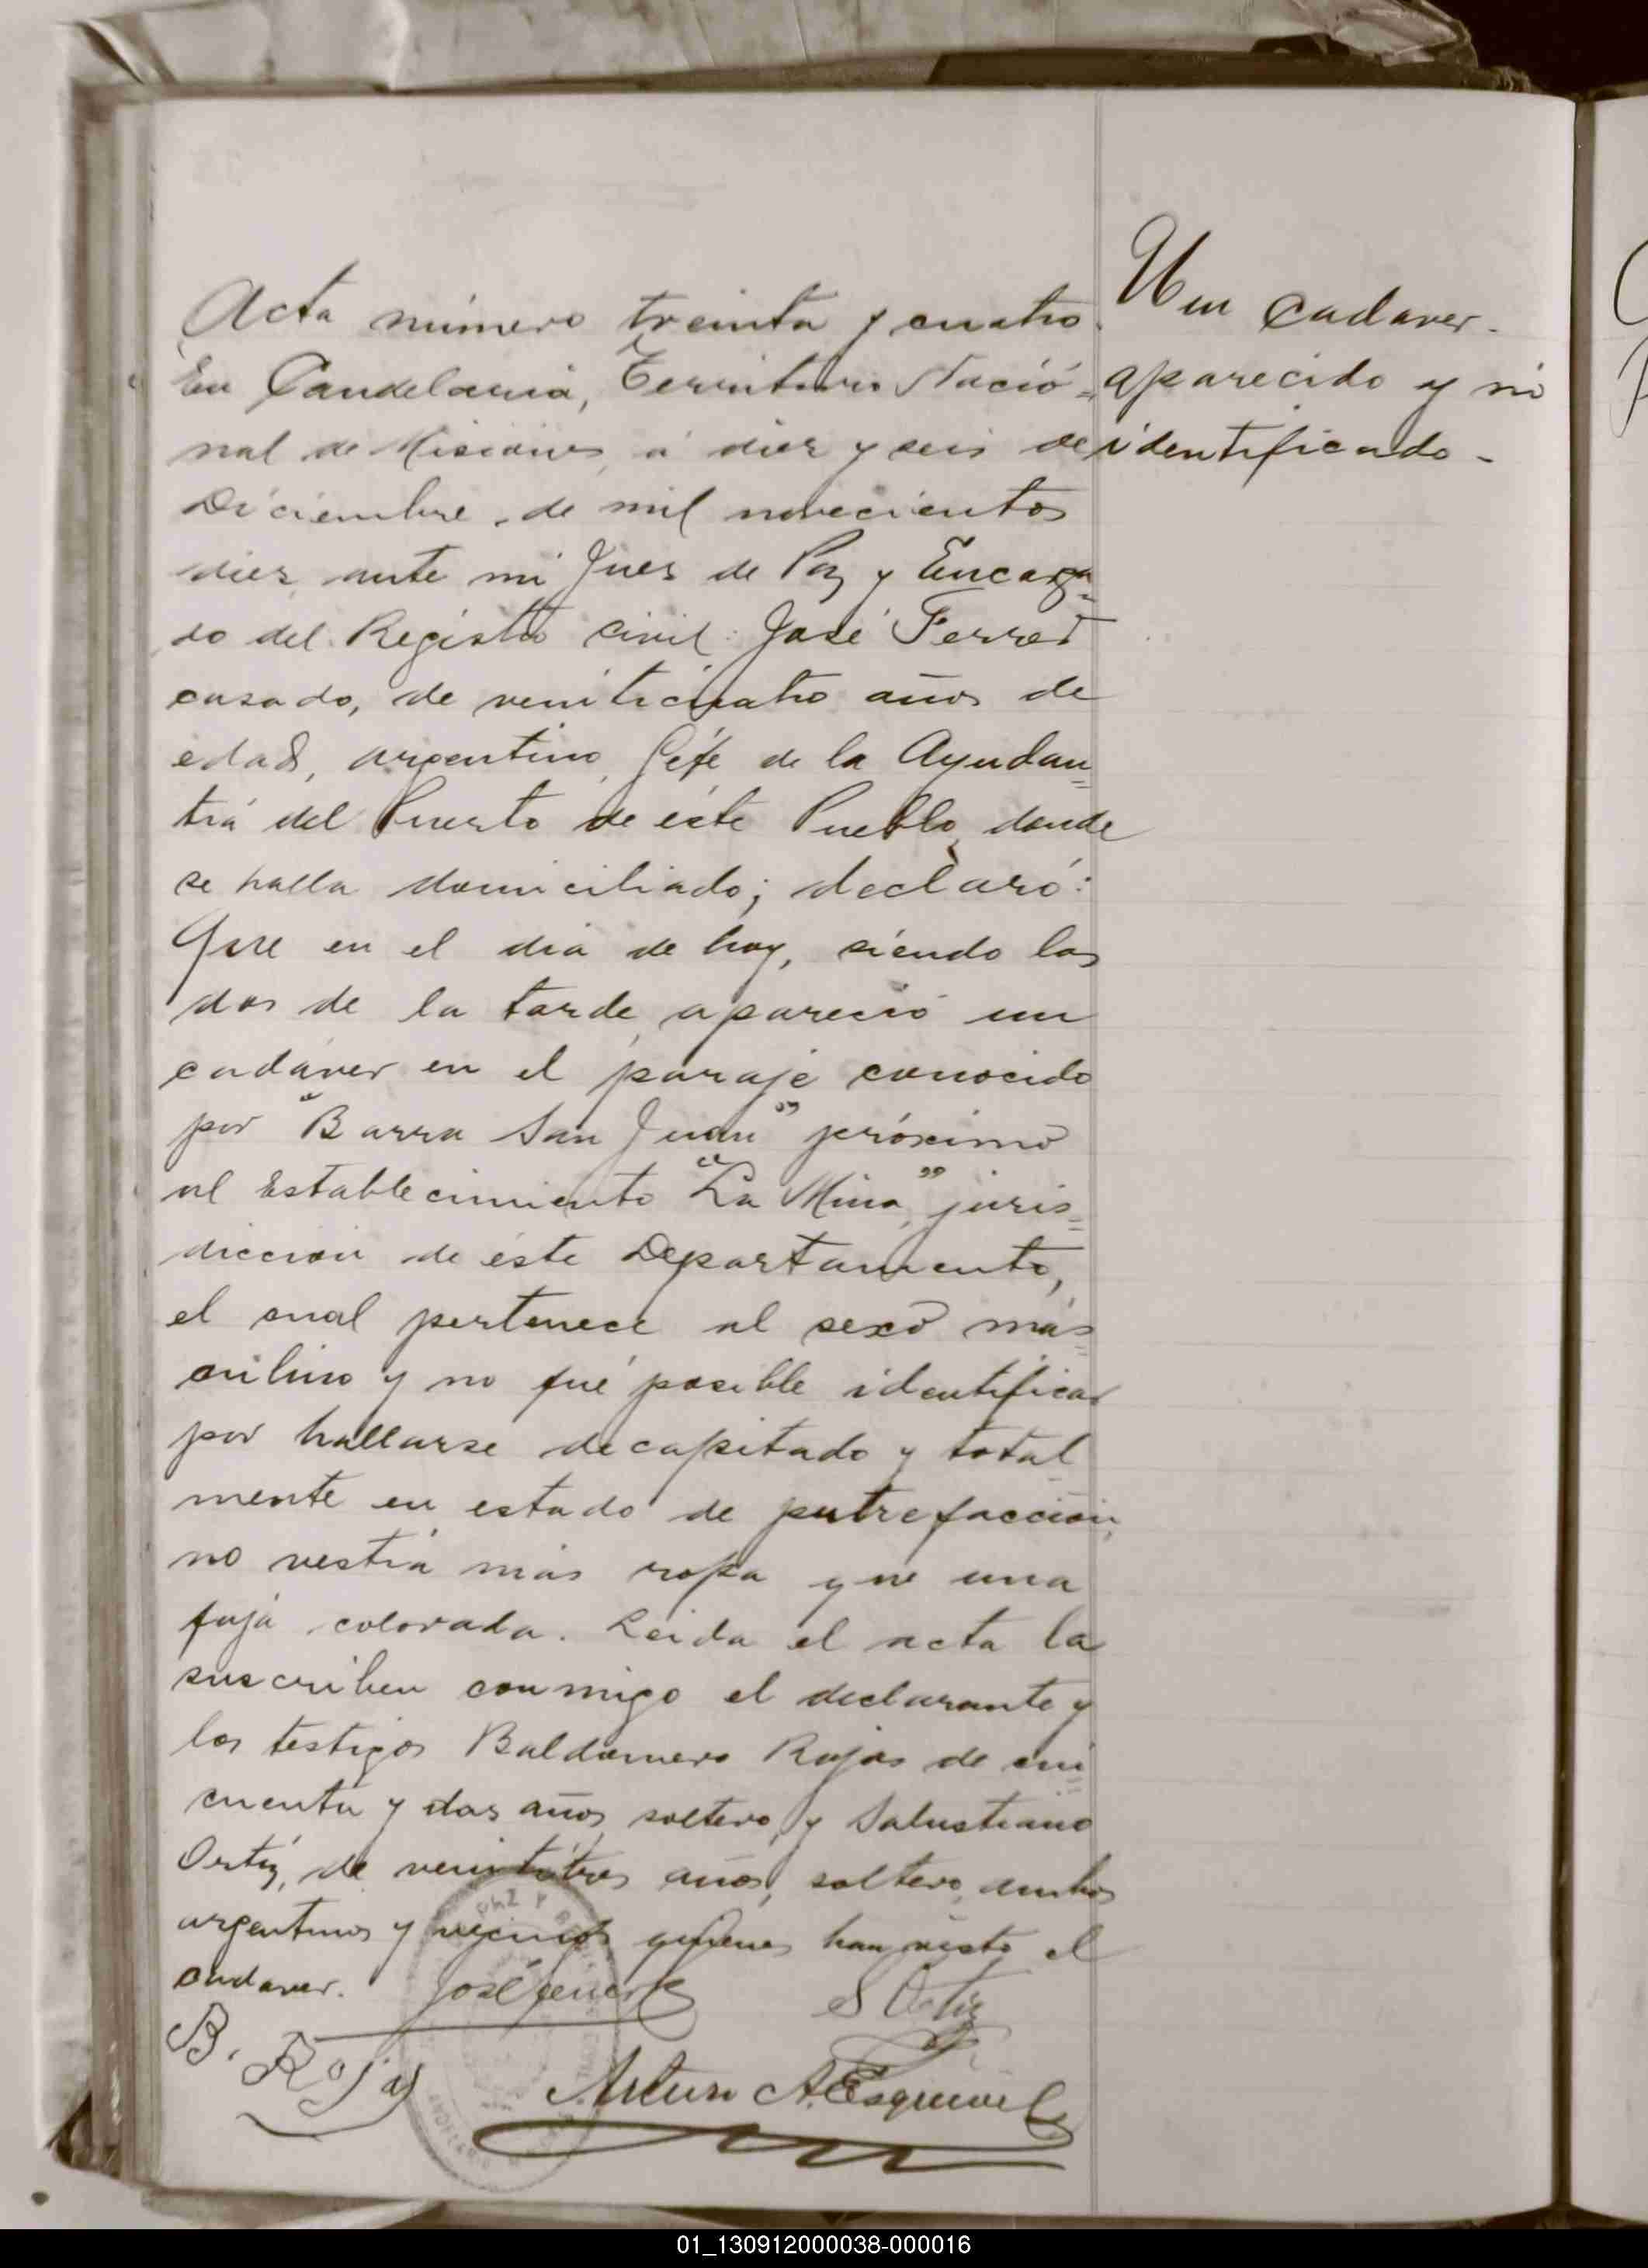 Acta número treinta y cuatro.
En Candelaria, Territorio Nació=
nal de Misiones, á diez y seis de
Diciembre, de mil novecientos
diez, ante mi Juez de Paz y Encarga=
do del Registro civil: José Ferret
casado, de veinticuatro años de
edad, argentino, Géfe de la Ayudan=
tía del Puerto de éste Pueblo, donde
se halla domiciliado; declaró:
Que en el dia de hoy, siendo las
dos de la tarde, apareció un
cadáver en el paraje conocido
por "Barra San Juan" próximo
al Establecimiento "La Mina", juris=
diccion de éste Departamento,
el cual pertenece al sexo mas=
culino y no fué posible identificar
por hallarse decapitado y total
mente en estado de putrefacción,
no vestía más ropa que una
faja colorada. Leida el acta la
suscriben conmigo el declarante y
los testigos Baldomero Rojas de cin=
cuenta y dos años, soltero, y Salustiano
Ortíz, de veintitres años, soltero, ambos
argentinos y vecinos quienes han visto el
cadaver.
Un Cadaver.
aparecido y nó
identificado-
José Ferret
S Ortiz
B. Rojas
Arturo A. Esquivel
01_130912000038-000016